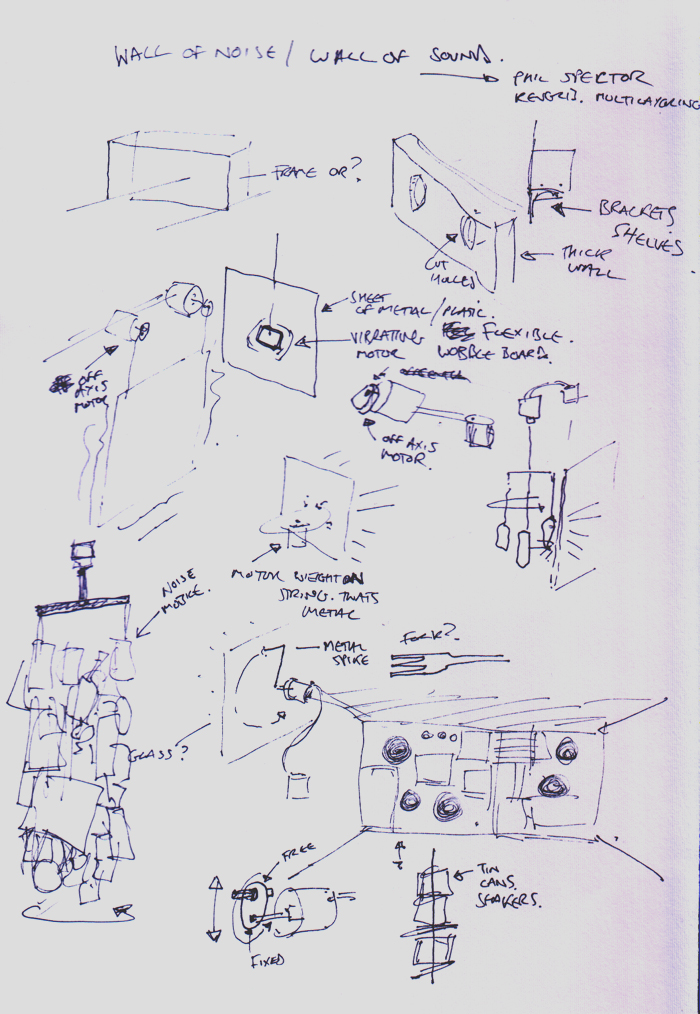 WALL OF NOISE / WALL OF SOUND.
PHIL SPEKTOR
REVERB. MULTILAYERING
FRAME OR?
BRACKETS
SHELVES
CUT
HOLES
THICK
WALL
SHEET
OF METAL/PLASTIC.
VIBRATING
MOTOR
FLEXIBLE.
WOBBLE BOARD.
OFF
AXIS
MOTOR
OFF AXIS
MOTOR.
MOTOR WEIGHT ON
STRING. THATS
METAL
NOISE
METAL
SPIKE
FORK?
GLASS?
FREE
FIXED
TIN
CANS.
SHAKERS.